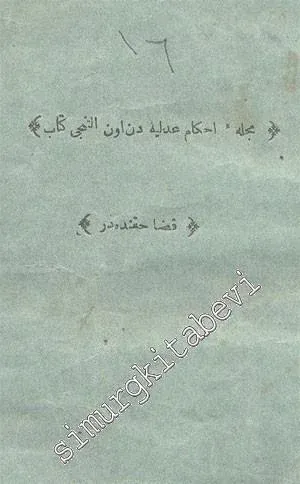 ١٦
﴿ مجلهٴ احكام عدليه دن اون التنجى كتاب ﴾
﴿ قضا حقنده در ﴾
simurgkitabevi